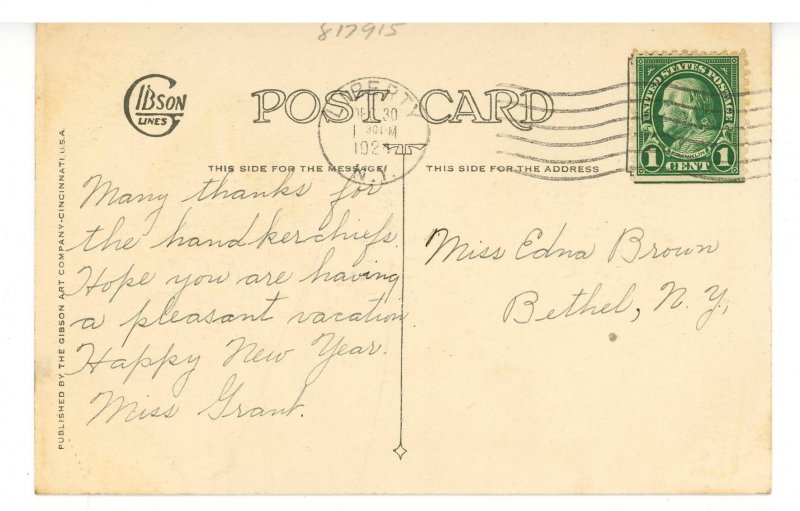 817915
GIBSON
LINES
POST CARD
LIBERTY
DEC 30
1 30 PM
192
N.Y.
UNITED STATES POSTAGE
FRANKLIN
1 CENT 1
THIS SIDE FOR THE MESSAGE
THIS SIDE FOR THE ADDRESS
Many thanks for
the handkerchiefs.
Hope you are having
a pleasant vacation
Happy New Year.
Miss Grant.
Miss Edna Brown
Bethel, N. Y.,
PUBLISHED BY THE GIBSON ART COMPANY-CINCINNATI, U.S.A.